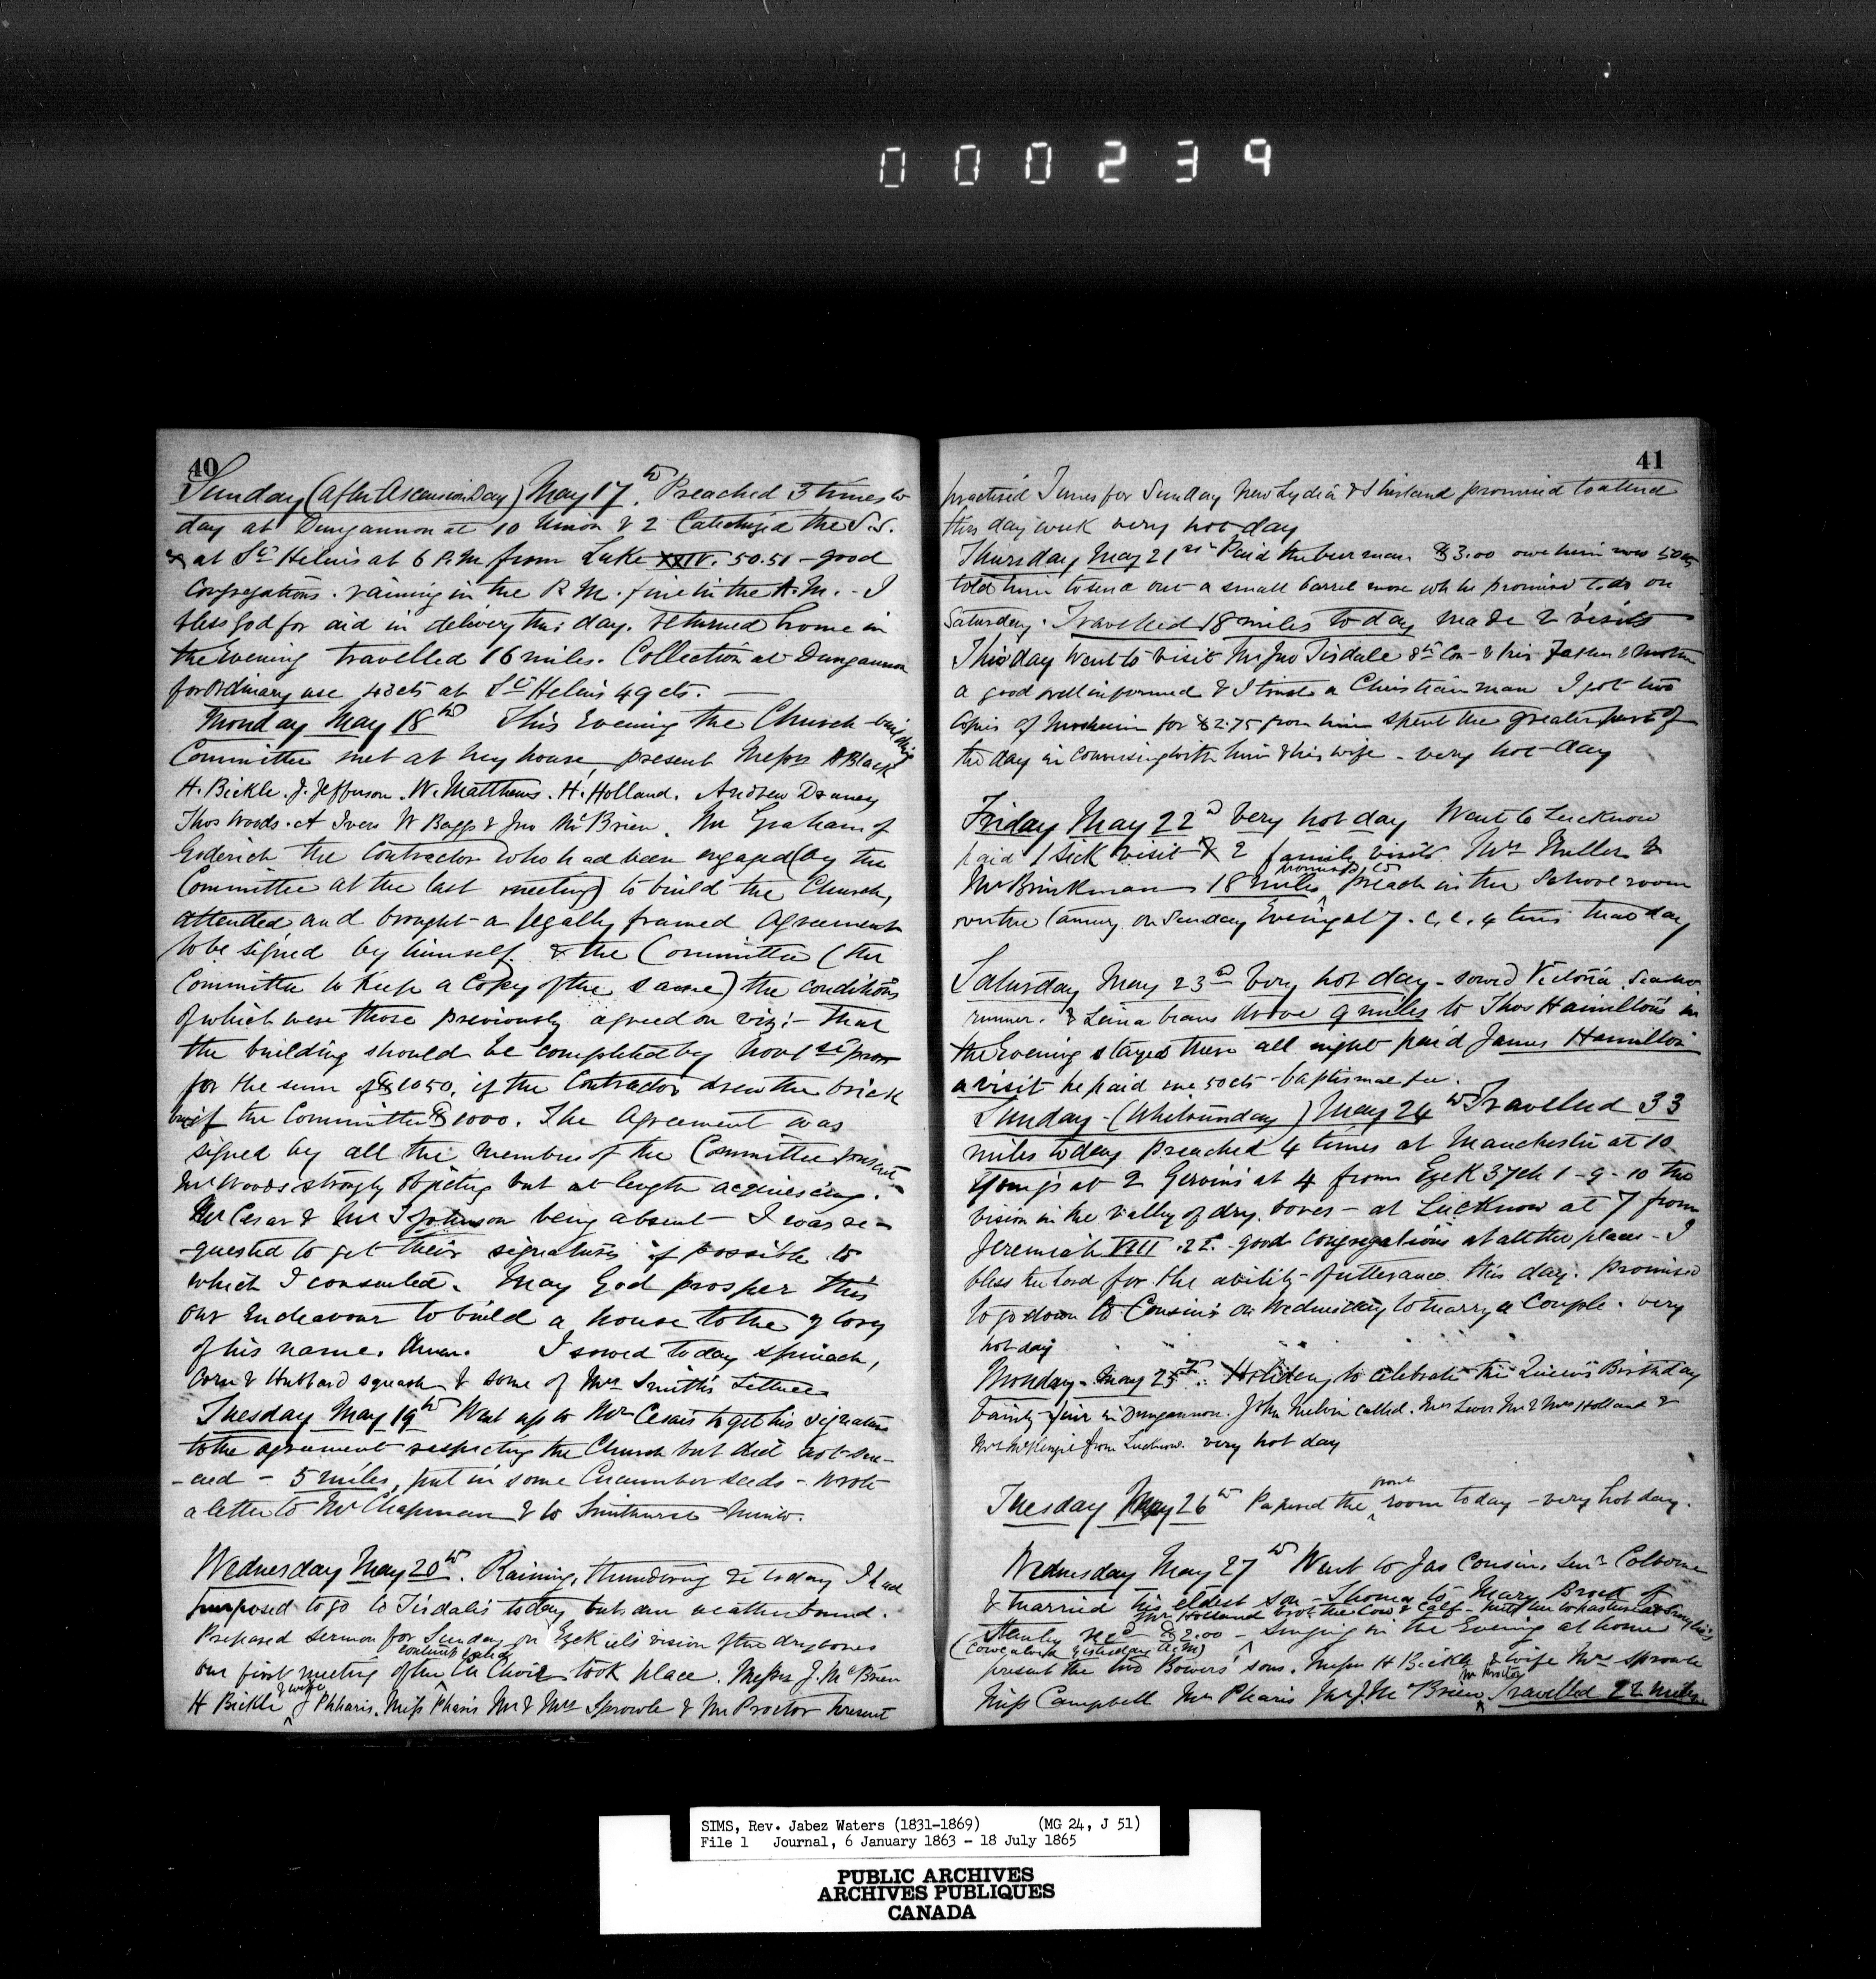 000239
40
Sunday (after Ascension Day) May 17th. Preached 3 times to
day at Dungannon at 10 & 2 Catechized the S.S.
& at St Helens at 6 P.M. from Luke XXIV. 50.51 - good
Congregations. raining in the P.M. fine in the A.M. - I
bless God for aid in delivery this day. returned home in
the Evening travelled 16 miles. Collection at Dungannon
for Ordinary use 43cts at St Helens 49cts. —
Monday May 18th This Evening the Church building
Committee met at my house, present Messrs A Black
H. Bickle. J. Jefferson. W. Matthews. H. Holland. Andrew
Thos Woods. A Ivers W Baggs & Jno McBrien. Mr Graham of
Goderich the Contractor who had been engaged (by the
Committee at the last meeting) to build the Church,
attended and brought a legally framed Agreement
to be signed by himself & the Committee (the
Committee to keep a Copy of the same) the conditions
of which were those previously agreed on viz:- that
the building should be completed by Novr 1st prox
for the sum of $1050, if the Contractor drew the brick
but if the Committee $1000. The Agreement was
signed by all the members of the Committee present
Mr Woods strongly objecting but at length acquiescing.
Mr Cesar & Mr J Johnson being absent - I was re-
-quested to get their signatures if possible to
which I consented. May God prosper this
our Endeavour to build a house to the glory
of his name. Amen. I sowed today spinach,
Corn & Hubbard squash & some of Mrs Smith's Lettuce
Tuesday May 19th Went up to Mr Cesar's to get his signature
to the agreement respecting the Church but did not suc-
-ceed - 5 miles, put in some Cucumber seeds - wrote
a letter to Mr Chapman & to Smithurst Minto.
Wednesday May 20th. Raining, thundering &c today I had
purposed to go to Tisdale's today but am weatherbound.
Prepared sermon for Sunday on Ezekiel's vision of the dry bones
our first meeting of the Ch Choir took place. Messrs J. McBrien
H Bickle & wife J Phharis. Miss Pharis Mr & Mrs Sprowle & Mr Proctor present
41
practised Tunes for Sunday promised to attend
this day week very hot day
Thursday May 21st Paid the beer man $3.00 owe him now 50cts
told him to send out a small barrel more wh he promised to do on
Saturday. Travelled 18 miles to day made 2 visits
This day Went to visit Mr Jno Tisdale 8th Con - & his Father & Mother
a good well informed & I trust a Christian man I got two
Copies of for $2.75 from him spent the greater part of
the day in Conversing with him & his wife - very hot day
Friday May 22d Very hot day Went to Lucknow
paid 1 sick visit & 2 family visits. Mrs Miller &
Mr Brinkman 18 miles promised to preach in the School room
on Sunday Evening at 7. day
Saturday May 23rd Very hot day - sowed Victoria, Scarlet
runner. & Lima beans drove 9 miles to Thos Hamilton's in
the Evening stayed there all night paid James Hamilton
a visit he paid me 50cts baptismal fee.
Sunday - (Whitsunday) May 24th Travelled 33
miles today preached 4 times at Manchester at 10
Young's at 2 Gervin's at 4 from Ezek 37ch 1 - 9 - 10 the
vision in the valley of dry bones - at Lucknow at 7 from
Jeremiah VIII .22. - good Congregations at all the places - I
bless the Lord for the ability of utterance this day. promised
to go down to Cousin's on Wednesday to marry a Couple. very
hot day
Monday - May 25th. Holiday to celebrate the Queen's Birthday
Vanity fair in Dungannon. John Melvin called. Mr & Mrs Holland &
Mr McKenzie from Lucknow. very hot day
Tuesday May 26th Papered the front room today - very hot day.
Wednesday May 27th Went to Jas Cousins Senr Colborne
& married his eldest son - Thomas to Mary Brock of
Mr Holland brot the Cow & Calf - put her to pasture
Stanley recd $2.00 - singing in the Evening at home
(Cow calved yesterday A.M)
present the two Bowers' sons. Messrs H Bickle & wife Mrs Sprowle
Miss Campbell Mr Pharis Mr J. McBrien Mr Proctor Travelled 22 miles
SIMS, Rev. Jabez Waters (1831-1869) (MG 24, J 51)
File 1 Journal, 6 January 1863 - 18 July 1865
PUBLIC ARCHIVES
ARCHIVES PUBLIQUES
CANADA